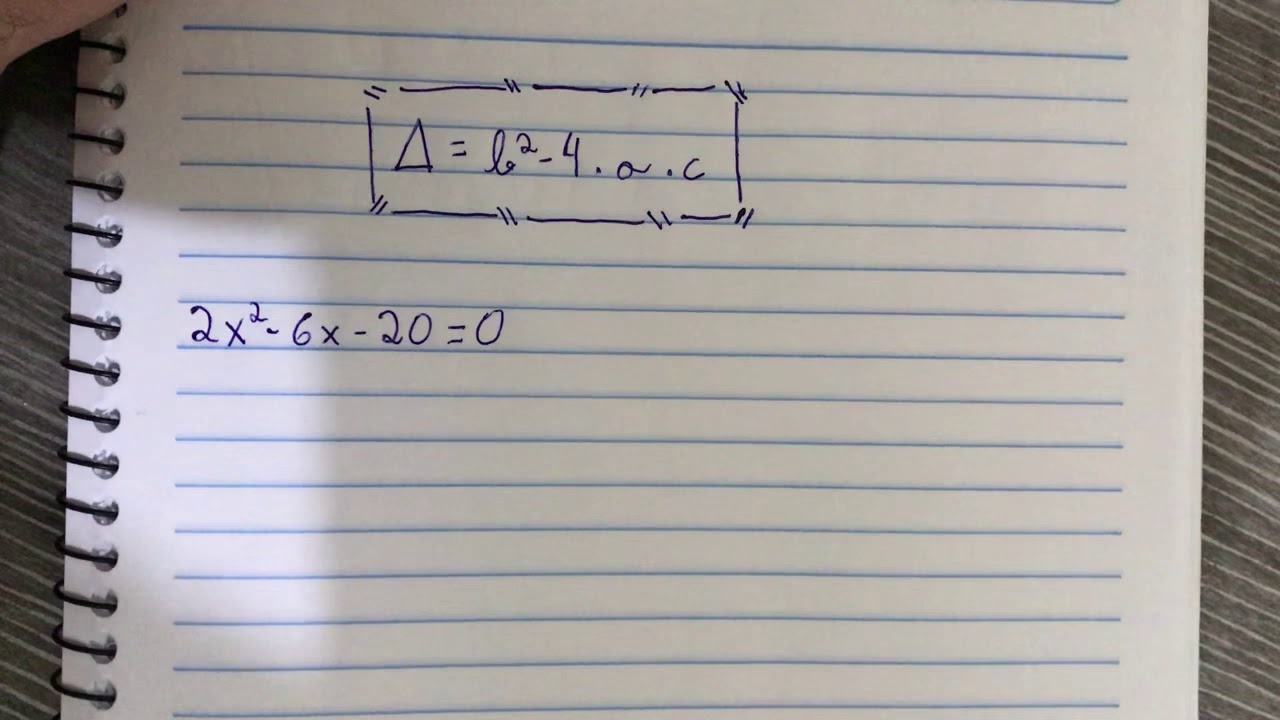 Δ = b² - 4 . a . c
2x² - 6x - 20 = 0